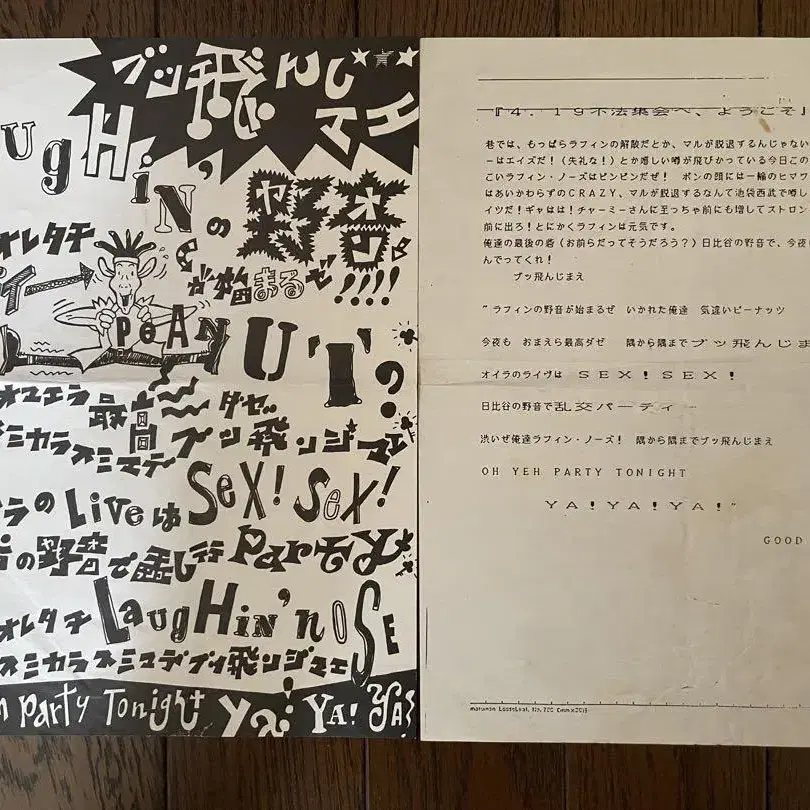 ブッ飛んじマエ
ughin'
N'の野音
オレタチ
が始まるぜ!!!!
イー
PeANUT?の
オマエラ最高ダゼ
ミカラスミマデブッ飛ンジマエ
ラのLiveはSeX! SeX!
の野音で乱行PaRtY
オレタチ LaugHiN' nOSE
スミカラスミマデブッ飛ンジマエ
Party Tonight Ya! YA! YA!
『4.19不法集会へ、ようこそ』
巷では、もっぱらラフィンの解散だとか、マルが脱退するんじゃない
ーはエイズだ!(失礼な!)とか嬉しい噂が飛びかっている今日この
ごいラフィン・ノーズはビンビンだぜ! ポンの頭には一輪のヒマワ
はあいかわらずのCRAZY、マルが脱退するなんて池袋西武で噂し
イツだ!ギャはは!チャーミーさんに至っちゃ前にも増してストロン
前に出ろ!とにかくラフィンは元気です。
俺達の最後の砦(お前らだってそうだろう?)日比谷の野音で、今夜
んでってくれ!
ブッ飛んじまえ
"ラフィンの野音が始まるぜ いかれた俺達 気違いピーナッツ
今夜も おまえら最高ダゼ 隅から隅までブッ飛んじま
オイラのライヴは SEX!SEX!
日比谷の野音で乱交パーティー
渋いぜ俺達ラフィン・ノーズ! 隅から隅までブッ飛んじまえ
OH YEH PARTY TONIGHT
YA!YA!YA!"
GOOD
maruman LooseLeaf, No.